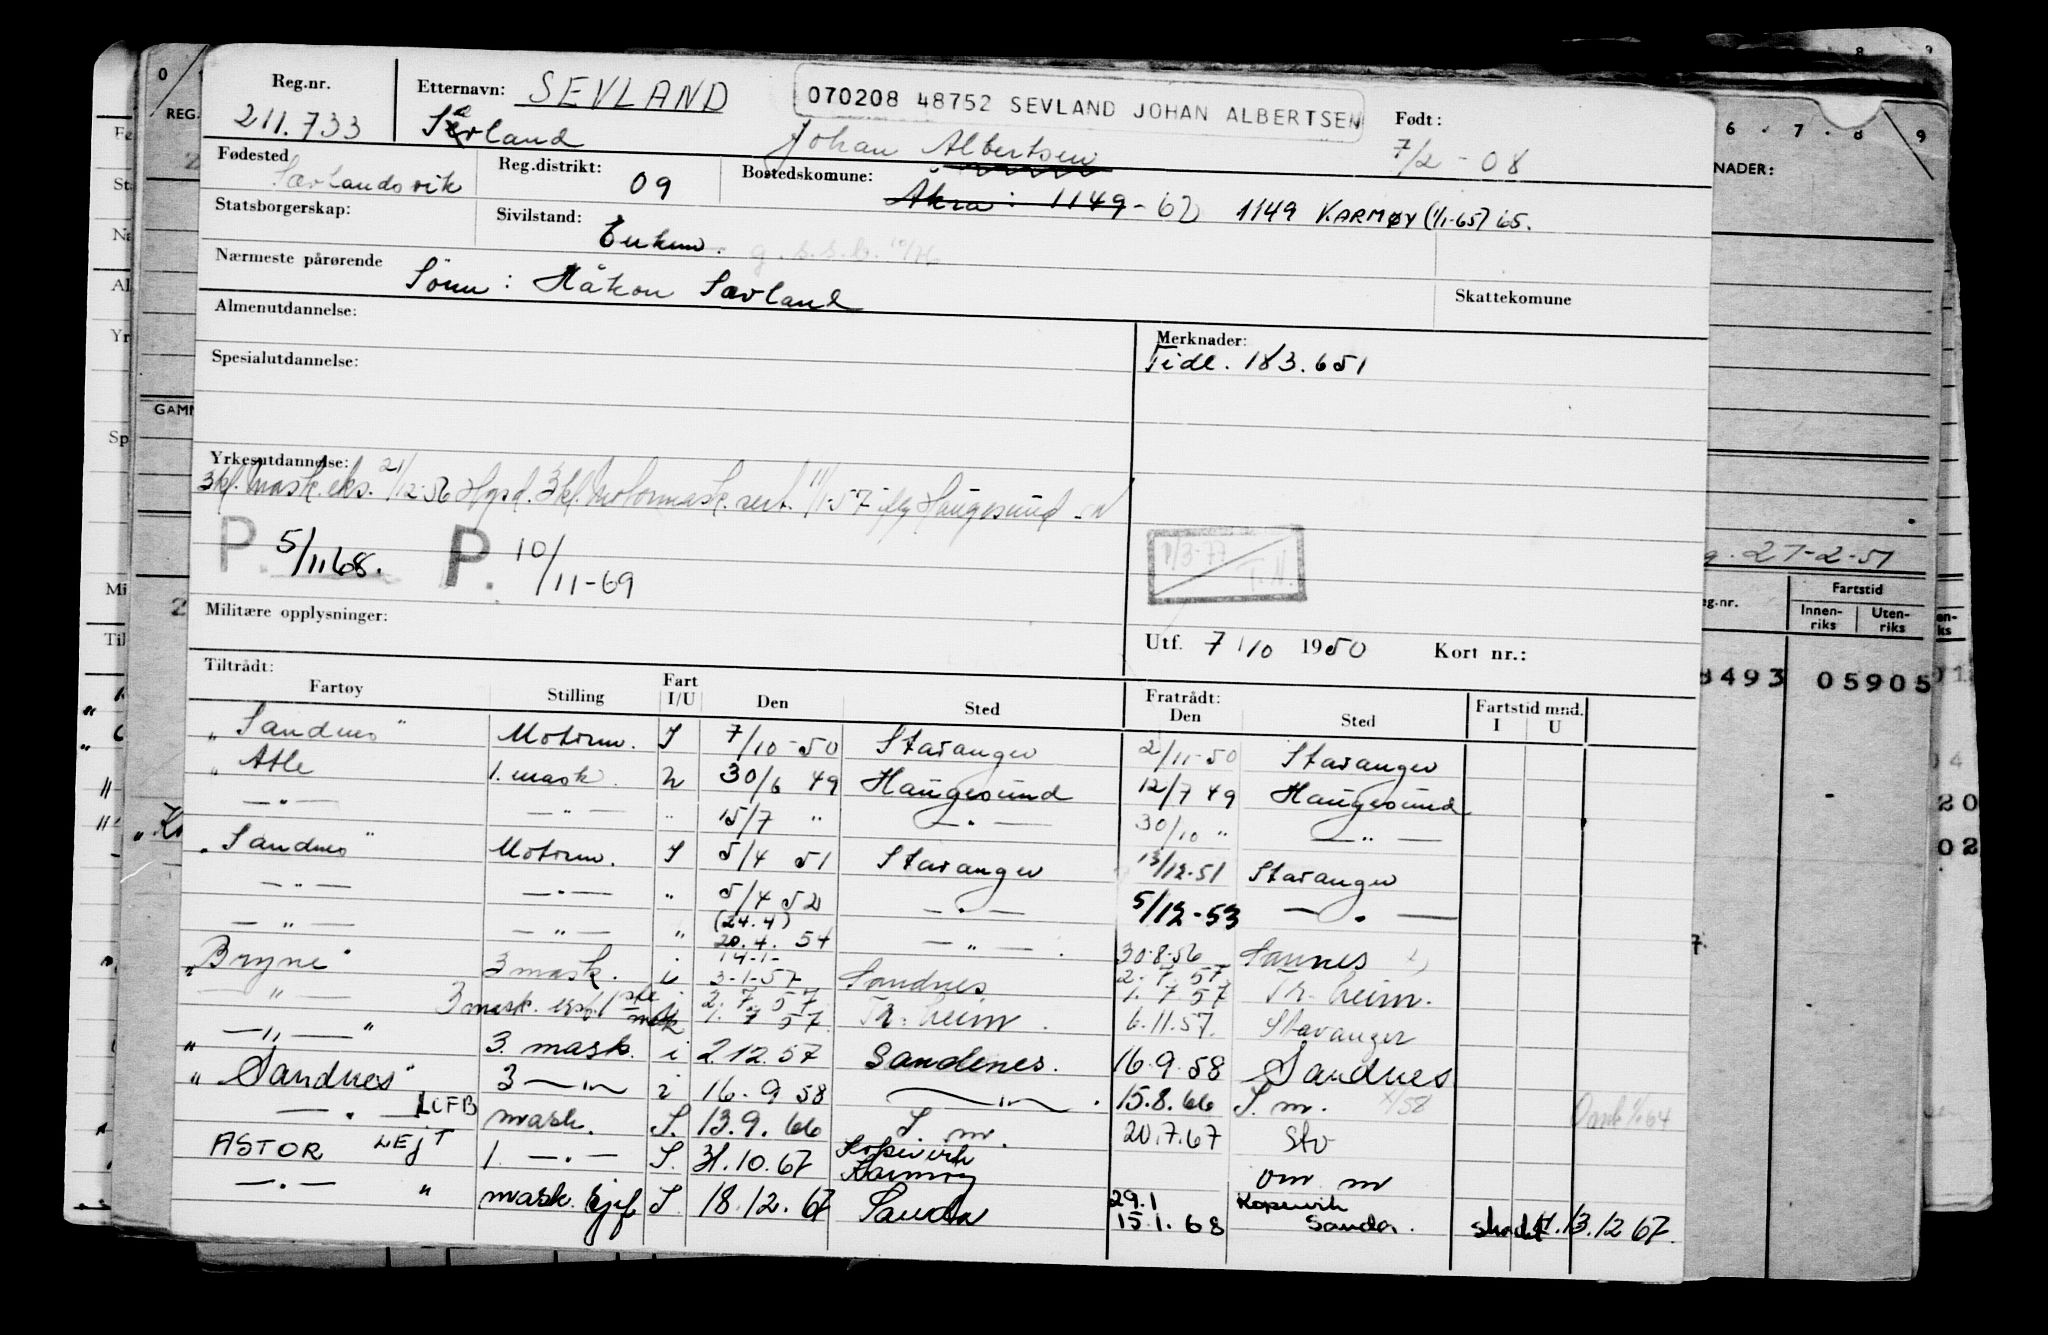 Reg.nr. Etternavn: SEVLAND 070208 48752 SEVLAND JOHAN ALBERTSEN Født:
211.733 Johan Albertsen 7/2-08
Fødested Reg.distrikt: 09 Bostedskomune: Åkra: 1149-62 1149 KARMØY (1/1-65) 65.
Sævlandsvik
Statsborgerskap: Sivilstand: Enkem.
Nærmeste pårørende Sönn: Håkon Sævland Skattekomune
Almenutdannelse: Merknader:
Spesialutdannelse: Tidl. 183.651
Yrkesutdannelse:
3kl. mask.eks. 21/12-56 Hgsd. 3kl. Motormask.sert. 11/1-57 Haugesund
P. 5/11 68. P. 10/11-69 T.N.
Militære opplysninger: Utf. 7/10 1950 Kort nr.:
Tiltrådt: Fratrådt:
Fartøy Stilling Fart I/U Den Sted Den Sted Fartstid mnd. I U
"Sandnes" Motorm. I 7/10-50 Stavanger 2/11-50 Stavanger
" Atle 1. mask. U 30/6 49 Haugesund 12/7 49 Haugesund
— " — — " — " 15/7 " — " — 30/10 " — " —
"Sandnes" Motorm. I 5/4 51 Stavanger 13/12-51 Stavanger
— " — — " — " 5/4 52 — " — 5/12-53 — " —
— " — — " — " (24.4) 20.4. 54 — " — 30.8.56 Sannes
"Bryne" 3 mask. i 14-1- 3-1-57 Sandnes 2.7.57 1.7.57 Tr.heim.
— " — 3 mask. 2.7.57 1.7.57 Tr.heim. 6.11.57. Stavanger
" — " — " 3. mask. i 2.12.57 Sandenes. 16.9.58 Sandnes
" Sandnes" 3 — " — i 16.9 58 — " — . 15.8.66 S. m. Omk 1/1 64
— " — LCFB mask. I. 13.9.66 S. m. 20.7.67 Stv
ASTOR LEJT 1. — " — I. 31.10.67 Kopervik Karmøy om m
— " — " mask. sjef I. 18.12.67 Sauda 29.1 15.1.68 Kopervik Sauda. 13.12 67.
0 REG. GAMM
6 7 8 9
NADER:
27-2-51
eg.nr. Fartstid
Innen-riks Uten-riks
8493 05905
20
02